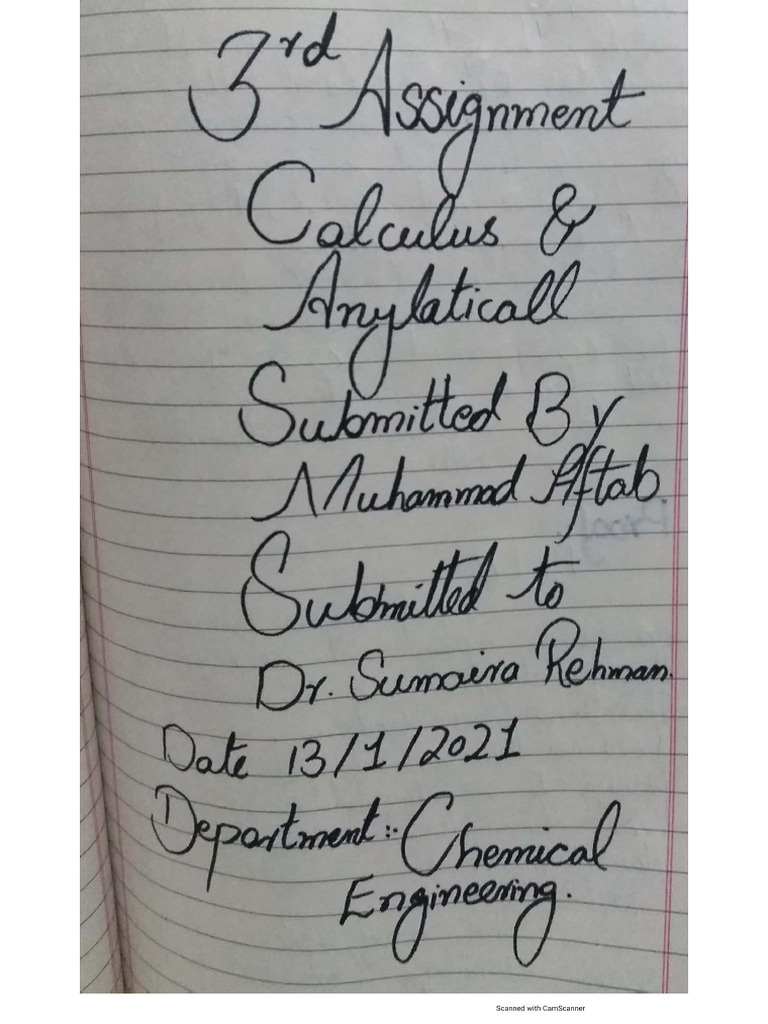 3rd Assignment
Calculus &
Anylaticall
Submitted By
Muhammad Aftab.
Submitted to
Dr. Sumaira Rehman.
Date 13/1/2021
Department:- Chemical
Engineering.
Scanned with CamScanner